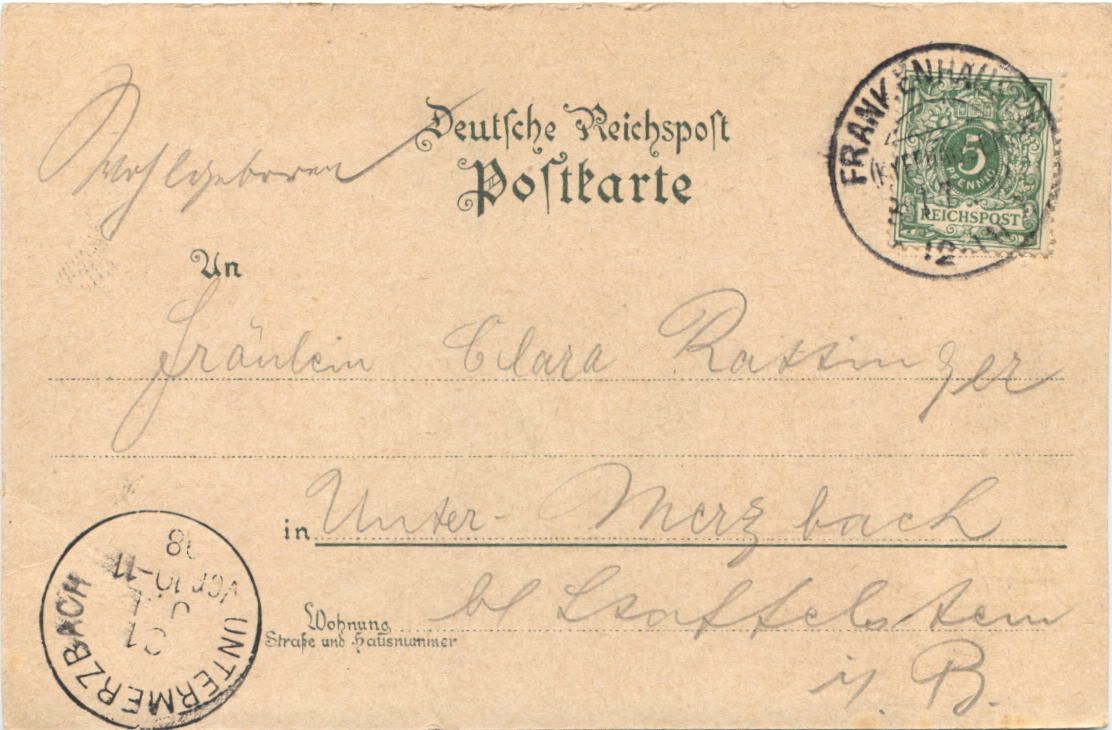 Deutsche Reichspost
Postkarte
Wohlgeboren
FRANKENHAUS
5
PFENNIG
REICHSPOST
An
Fräulein Clara Rassinger
in Unter-Merzbach
Wohnung
Straße und Hausnummer
bl Staffelstein
i. B.
UNTERMERZBACH
Vor 10-11
98